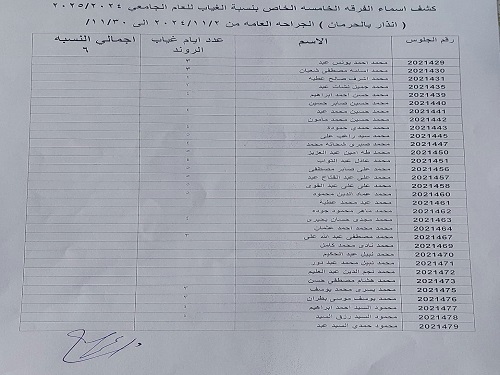 كشف اسماء الفرقه الخامسه الخاص بنسبة الغياب للعام الجامعي ٢٠٢٥/٢٠٢٤
( انذار بالحرمان ) الجراحه العامه من ٢٠٢٤/١١/٢ الى ١١/٣٠/
رقم الجلوس الاسم عدد ايام غياب الروند اجمالي النسبه ٦
2021429 محمد احمد يونس عبد ٣
2021430 محمد اسامه مصطفى شعبان ٣
2021431 محمد اشرف صالح عطيه
2021435 محمد جميل نشأت عبد
2021439 محمد حسن احمد ابراهيم
2021440 محمد حسين صابر حسين
2021441 محمد حسين محمد عبد
2021442 محمد حسين محمد مامون
2021443 محمد حمدي حمودة
2021445 محمد سيد راغب علي
2021447 محمد صبري شحاته محمد
2021450 محمد طه امين عبد العزيز
2021451 محمد عادل عبد التواب
2021456 محمد علي صابر مصطفى
2021457 محمد علي عبد الفتاح عبد
2021458 محمد علي علي عبد القوى
2021460 محمد عماد الدين محمود
2021461 محمد عيد محمد عطيه
2021462 محمد ماهر محمود جوده
2021463 محمد مجدى حسان بحيرى
2021464 محمد محمد احمد عثمان
2021467 محمد مصطفى عبد الله على ٣
2021469 محمد نادى محمد كامل
2021470 محمد نبيل عبد الحكيم
2021471 محمد نبيل محمد عبد
2021472 محمد نجم الدين عبد العليم
2021473 محمد هشام مصطفى حسن
2021475 محمد يسرى محمد يوسف
2021476 محمد يوسف موسى
2021477 محمود السيد احمد ابراهيم
2021478 محمود السيد رزق السيد
2021479 محمود حمدى السيد عبد